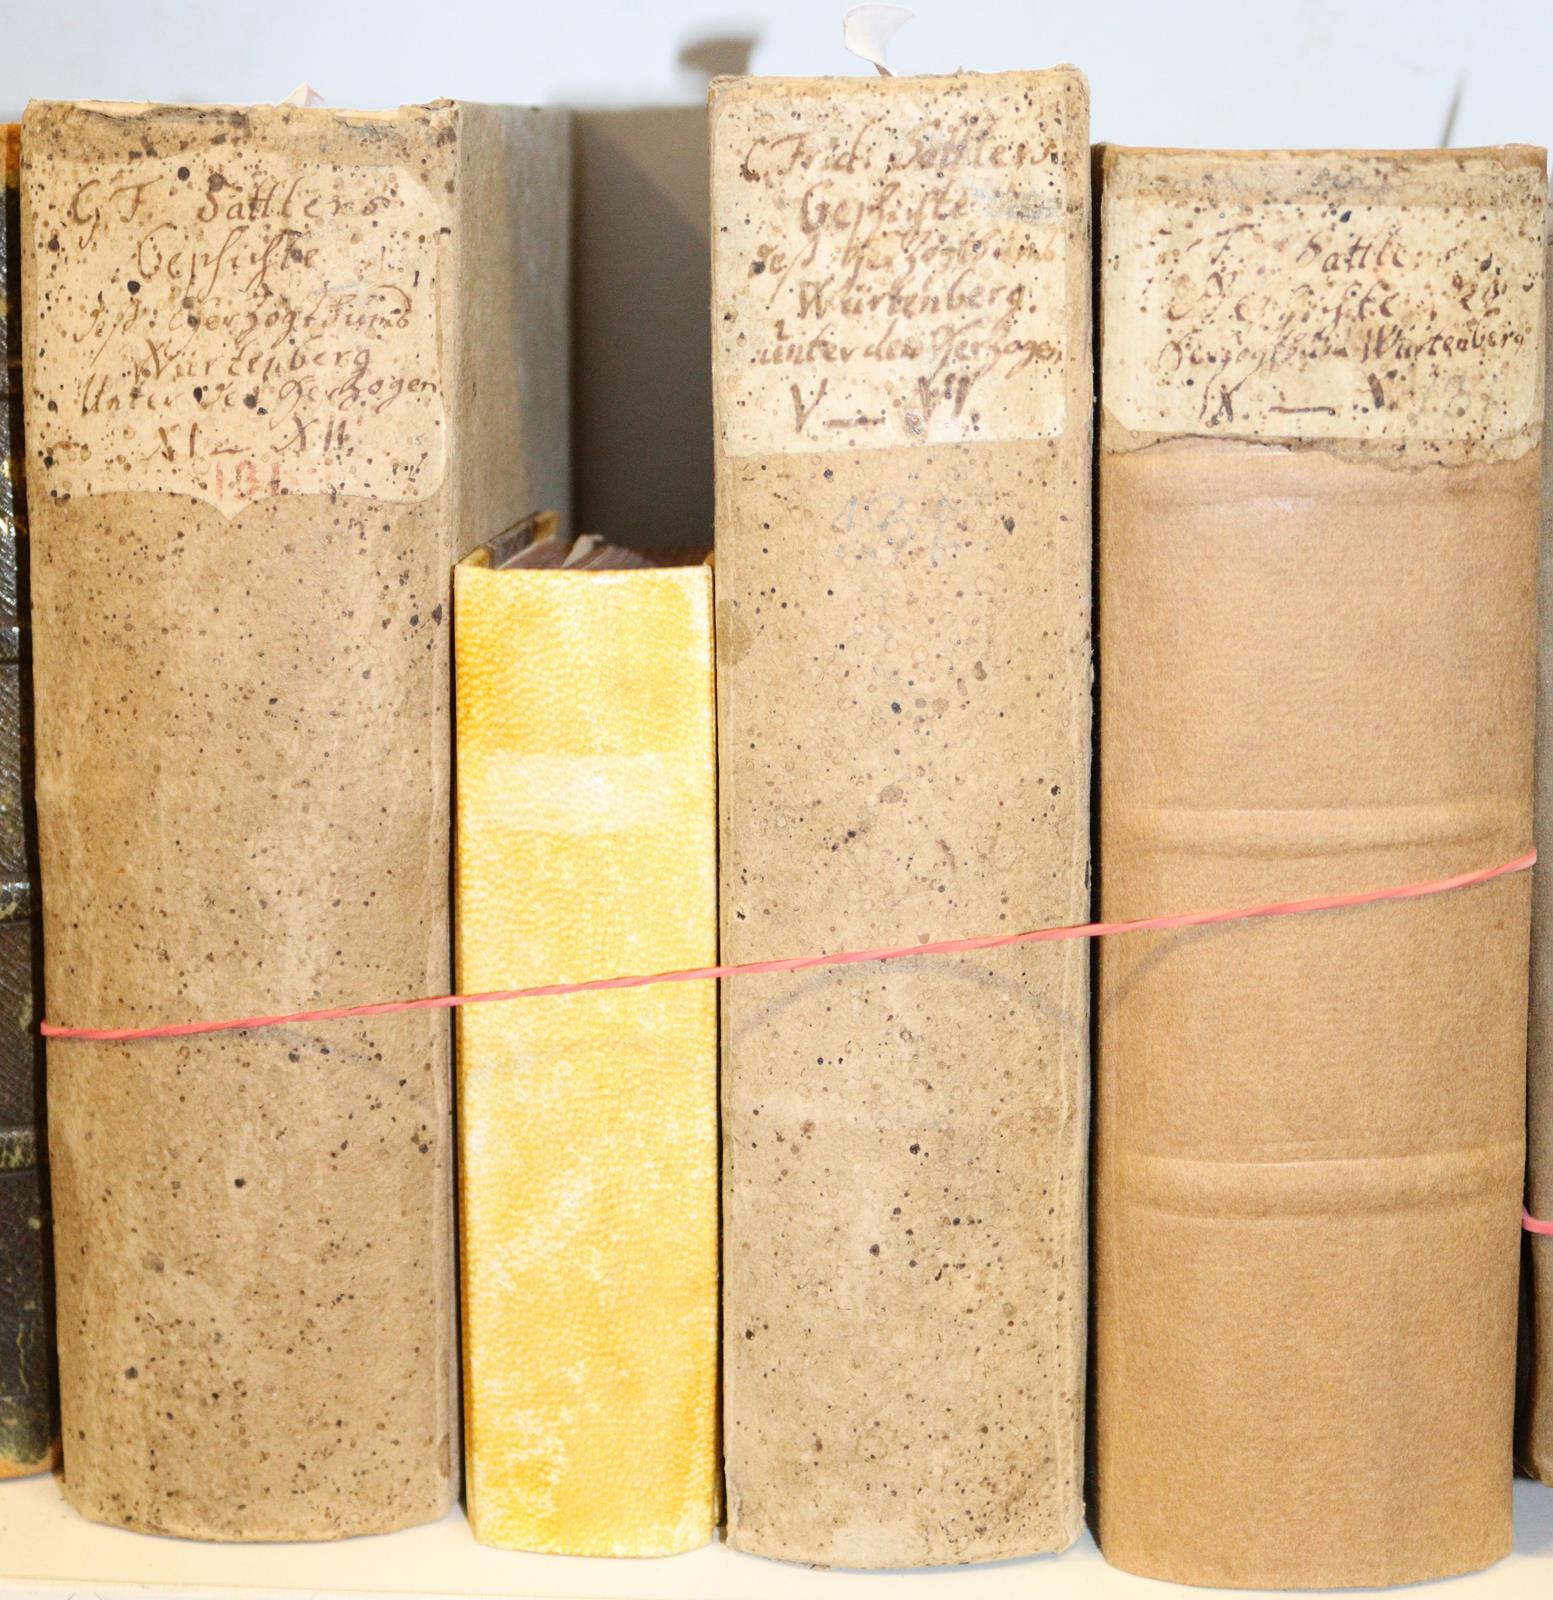 C F. Sattlers
Geschichte
deß Herzogthumbs
Würtenberg
Unter den Herzogen
XI – XII.
131.
C Frid. Sattlers
Geschichte
deß Herzogthumbs
Würtenberg.
unter den Herzogen
V — VII.
131
F. Sattlers
Geschichte
Herzogthum Würtenberg
IX. —